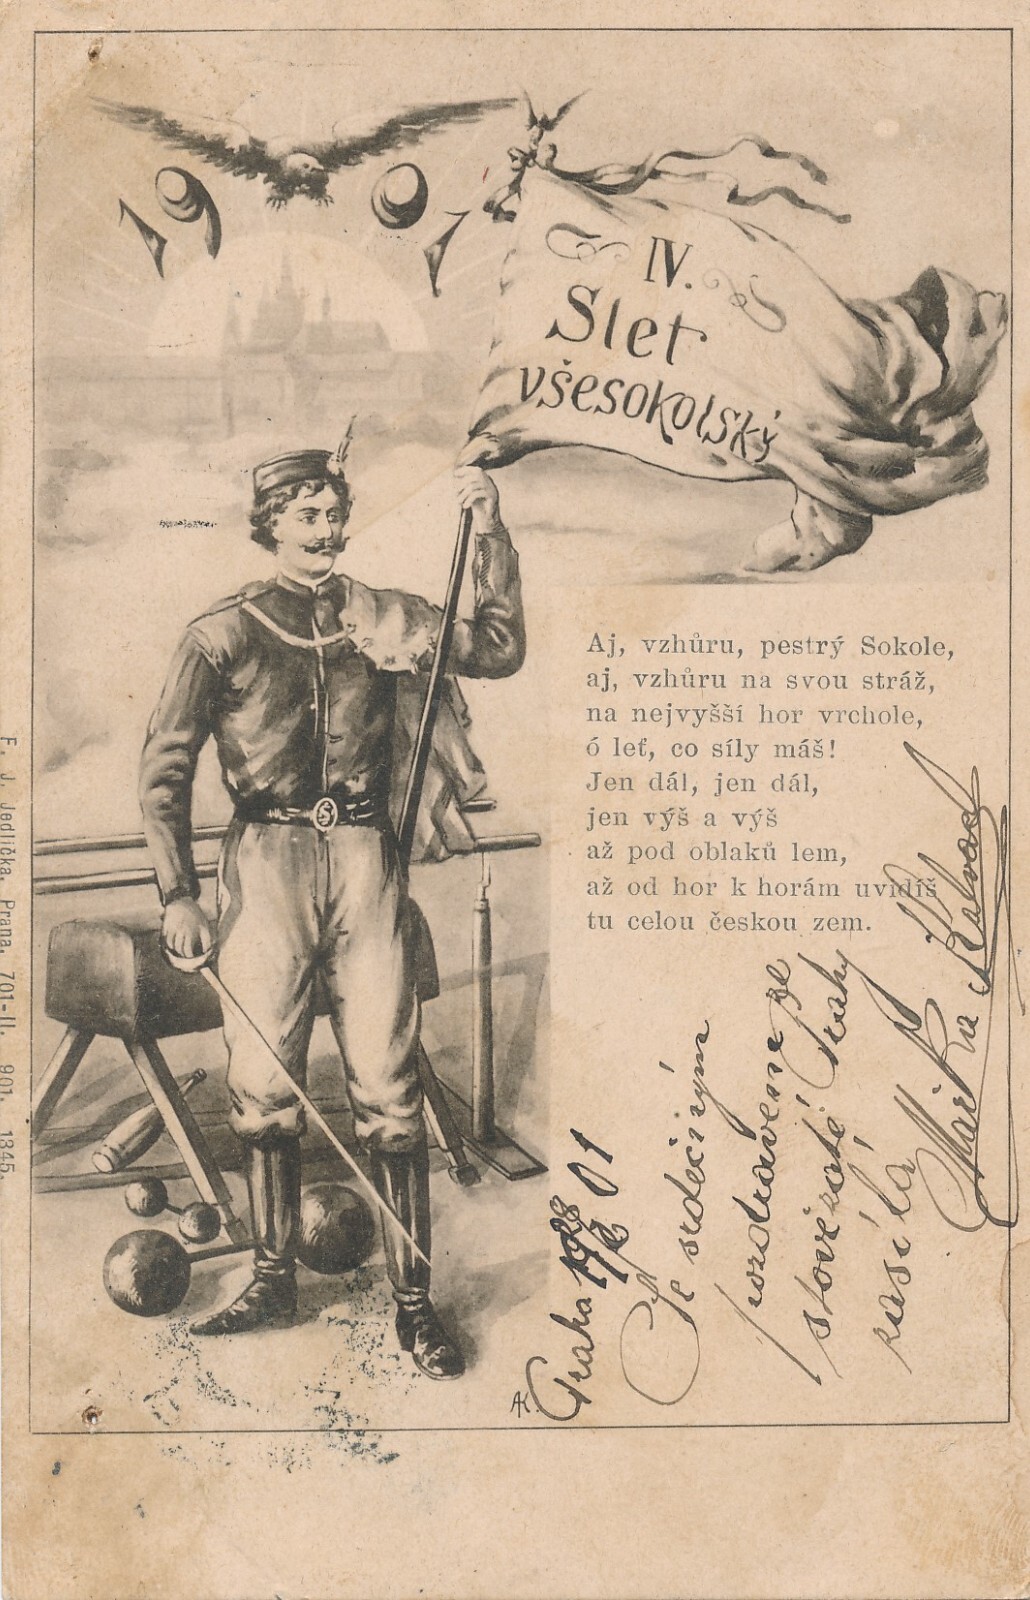 1901
IV.
Slet
všesokolský
Aj, vzhůru, pestrý Sokole,
aj, vzhůru na svou stráž,
na nejvyšší hor vrchole,
ó leť, co síly máš!
Jen dál, jen dál,
jen výš a výš
až pod oblaků lem,
až od hor k horám uvidíš
tu celou českou zem.
Praha 01
Se srdečným
pozdravem ze
stověžaté Prahy
zasílá
F. J. Jedlička, Praha. 701-II. 901. 1345.
AK.